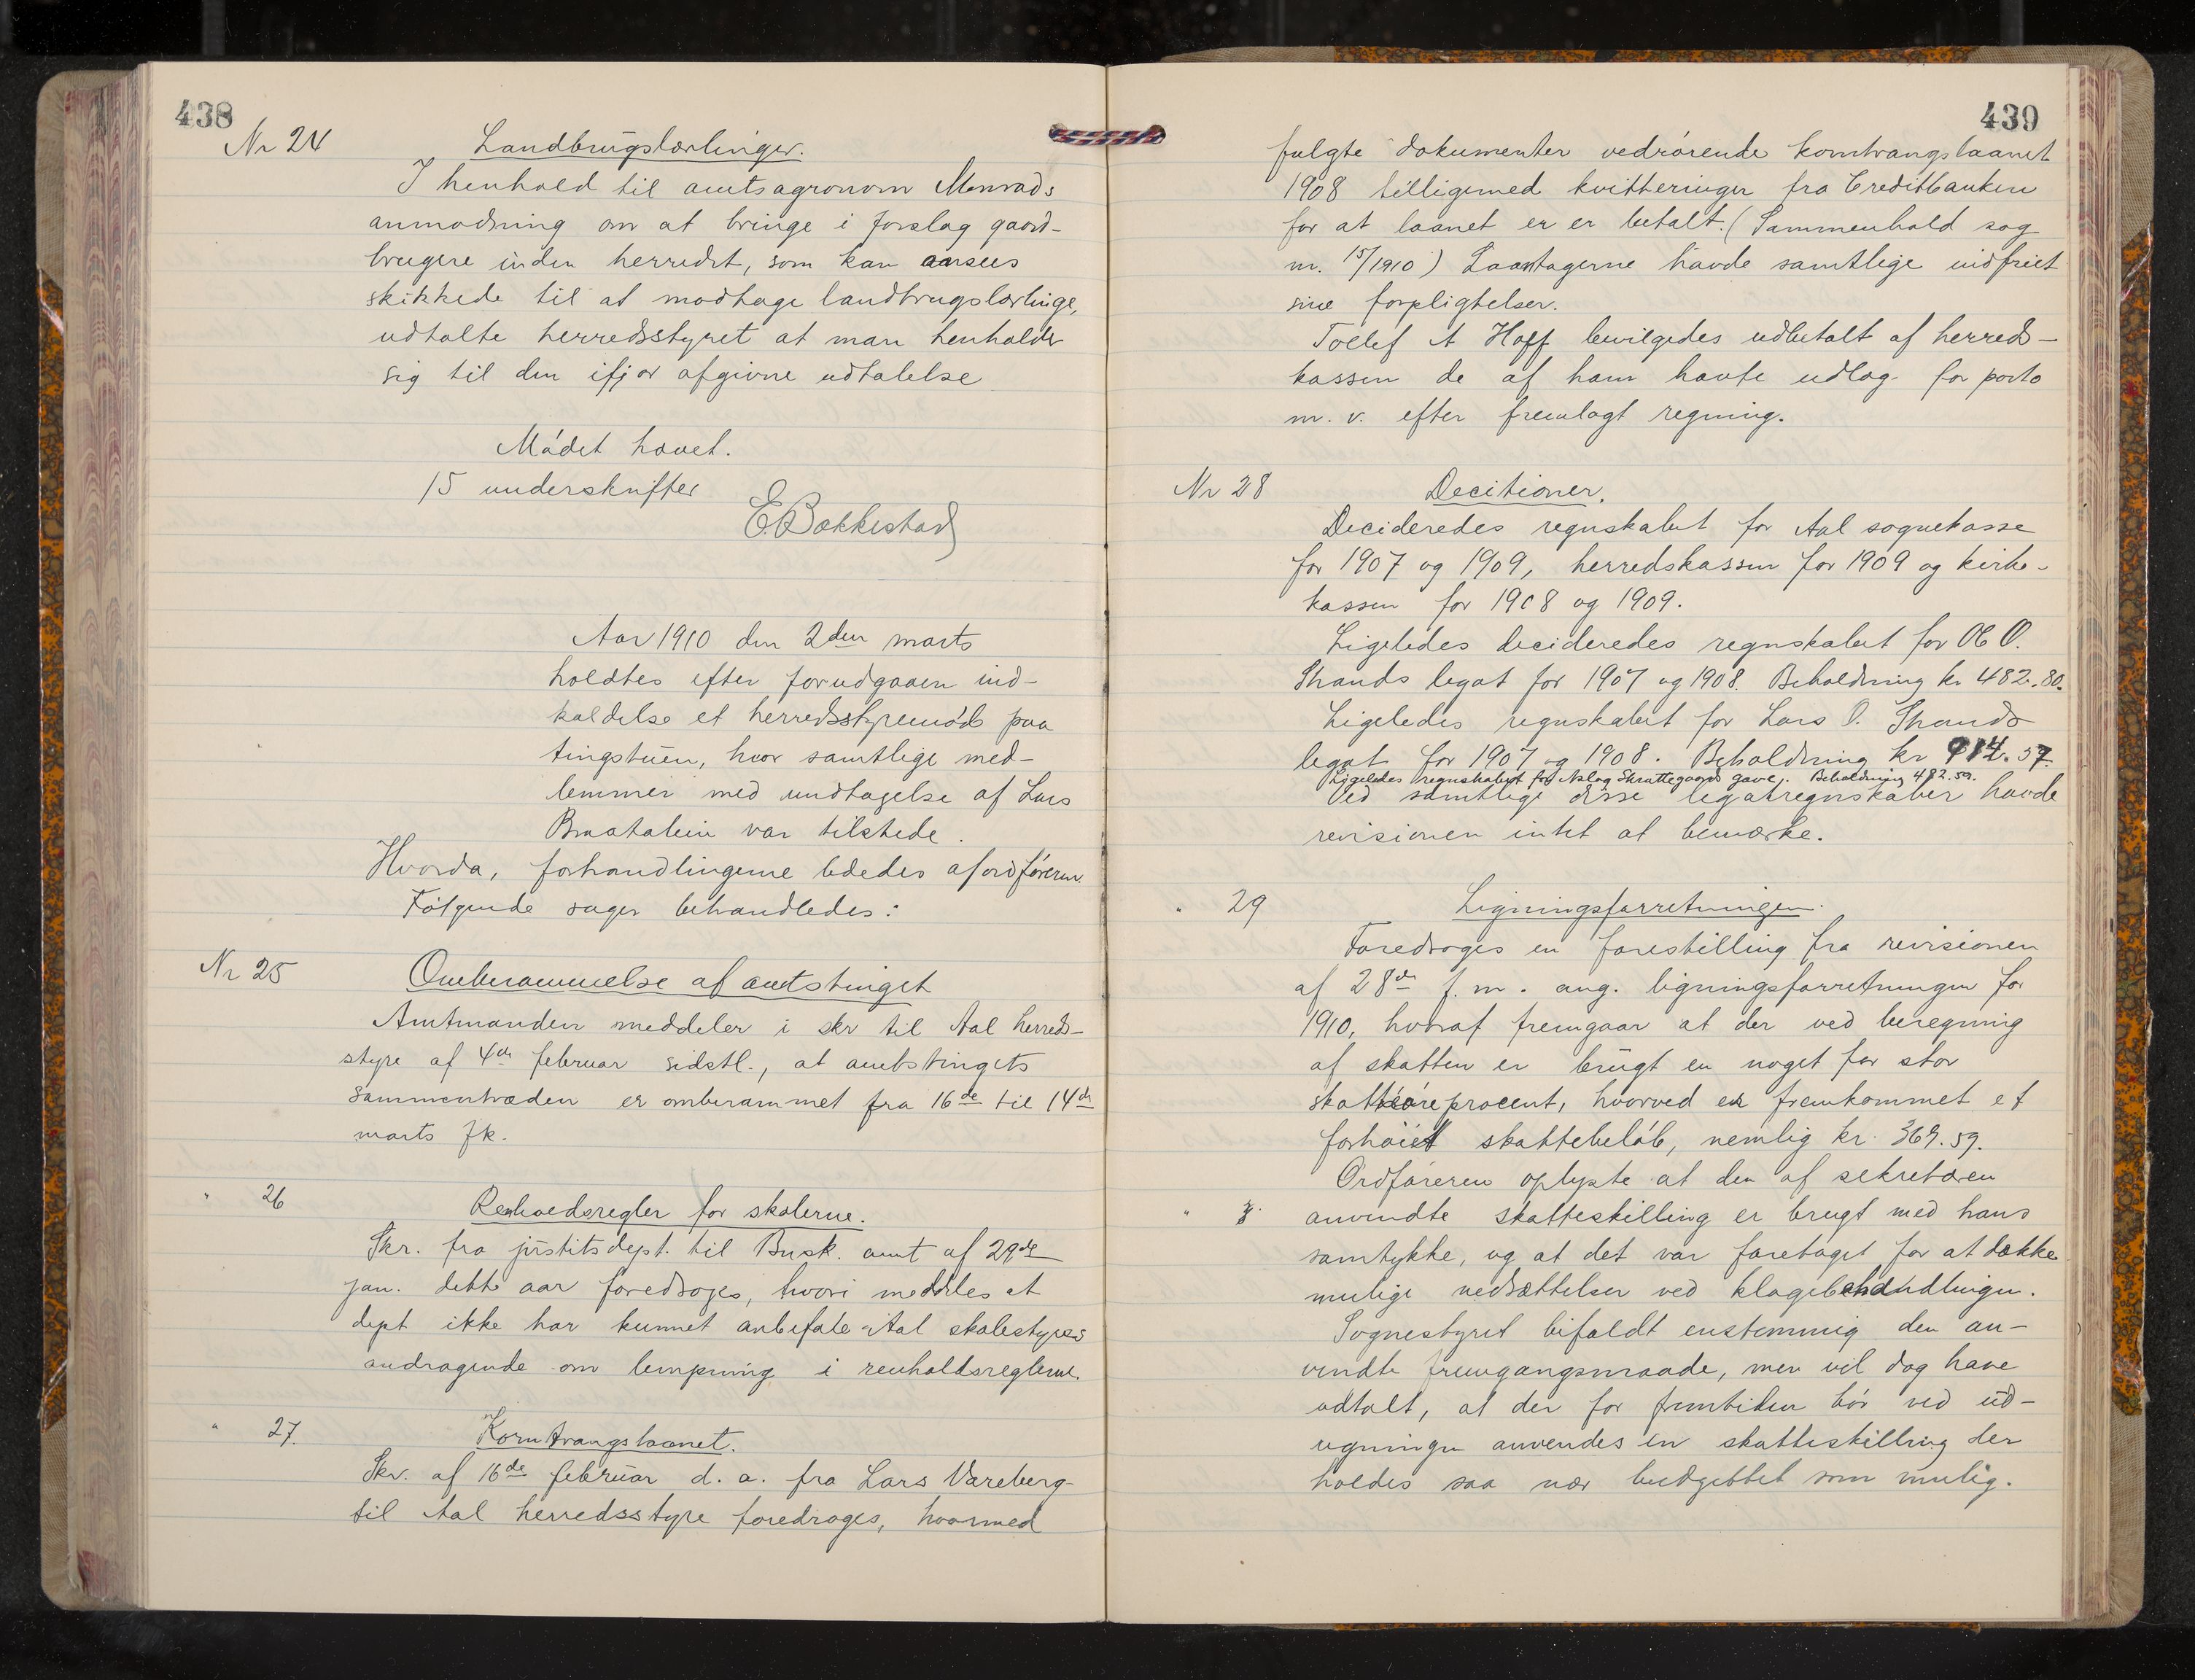 438
Nr 24 Landbrugslærlinger.
I henhold til amtsagronom Monrads
anmodning om at bringe i forslag gaard-
brugere inden herredet, som kan ansees
skikkede til at modtage landbrugslærlinge,
udtalte herredsstyret at man henholder
sig til den ifjor afgivne udtalelse
Mødet hævet.
15 underskrifter
E. Bækkestad
Aar 1910 den 2den marts
holdtes efter forudgaaen ind-
kaldelse et herredsstyremøde paa
tingstuen, hvor samtlige med-
lemmer med undtagelse af Lars
Braatalien var tilstede.
Hvorda, forhandlingerne lededes af ordføreren.
Følgende sager behandledes:
Nr 25 Omberammelse af amtstinget
Amtmanden meddeler i skr til Aal herreds-
styre af 4de februar sidstl., at amtstingets
sammentræden er omberammet fra 16de til 14de
marts fk.
" 26 Renholdsregler for skolerne.
Skr. fra justitsdept. til Busk. amt af 29de
jan. dette aar foredroges, hvori meddeles at
dept ikke har kunnet anbefale Aal skolestyres
andragende om lempning i renholdsreglerne.
" 27. Korntrangslaanet.
Skr. af 16de februar d. a. fra Lars Vareberg
til Aal herredsstyre foredroges, hvormed
439
fulgte dokumenter vedrørende korntrangslaanet
1908 tilligemed kvitteringer fra Creditbanken
for at laanet er er betalt. (Sammenhold sag
nr. 15/1910) Laantagerne havde samtlige indfriet
sine forpligtelser.
Tollef A Hoff bevilgedes udbetalt af herreds-
kassen de af ham havte udlæg for porto
m. v. efter fremlagt regning.
Nr 28 Decitioner.
Decideredes regnskabet for Aal sognekasse
for 1907 og 1909, herredskassen for 1909 og kirke-
kassen for 1908 og 1909.
Ligeledes decideredes regnskabet for Ol O.
Strands legat for 1907 og 1908. Beholdning kr 482.80.
Ligeledes regnskabet for Lars O. Strands
legat for 1907 og 1908. Beholdning kr 914.57.
Ligeledes regnskabet for Aslag Skrattegaards gave. Beholdning 482.59.
Ved samtlige disse legatregnskaber havde
revisionen intet at bemærke.
" 29 Ligningsforretningen.
Foredroges en forestilling fra revisionen
af 28de f. m. ang. ligningsforretningen for
1910, hvoraf fremgaar at der ved beregning
af skatten er brugt en noget for stor
skatteøreprocent, hvorved er fremkommet et
forhøiet skattebeløb, nemlig kr. 369.59.
Ordføreren oplyste at den af sekretæren
anvendte skatteskilling er brugt med hans
samtykke, og at det var foretaget for at dække
mulige nedsættelser ved klagebehandlingen.
Sognestyret bifaldt enstemmig den an-
vendte fremgangsmaade, men vil dog have
udtalt, at der for fremtiden bør ved ud-
regningen anvendes en skatteskilling der
holdes saa nær budgettet som mulig.